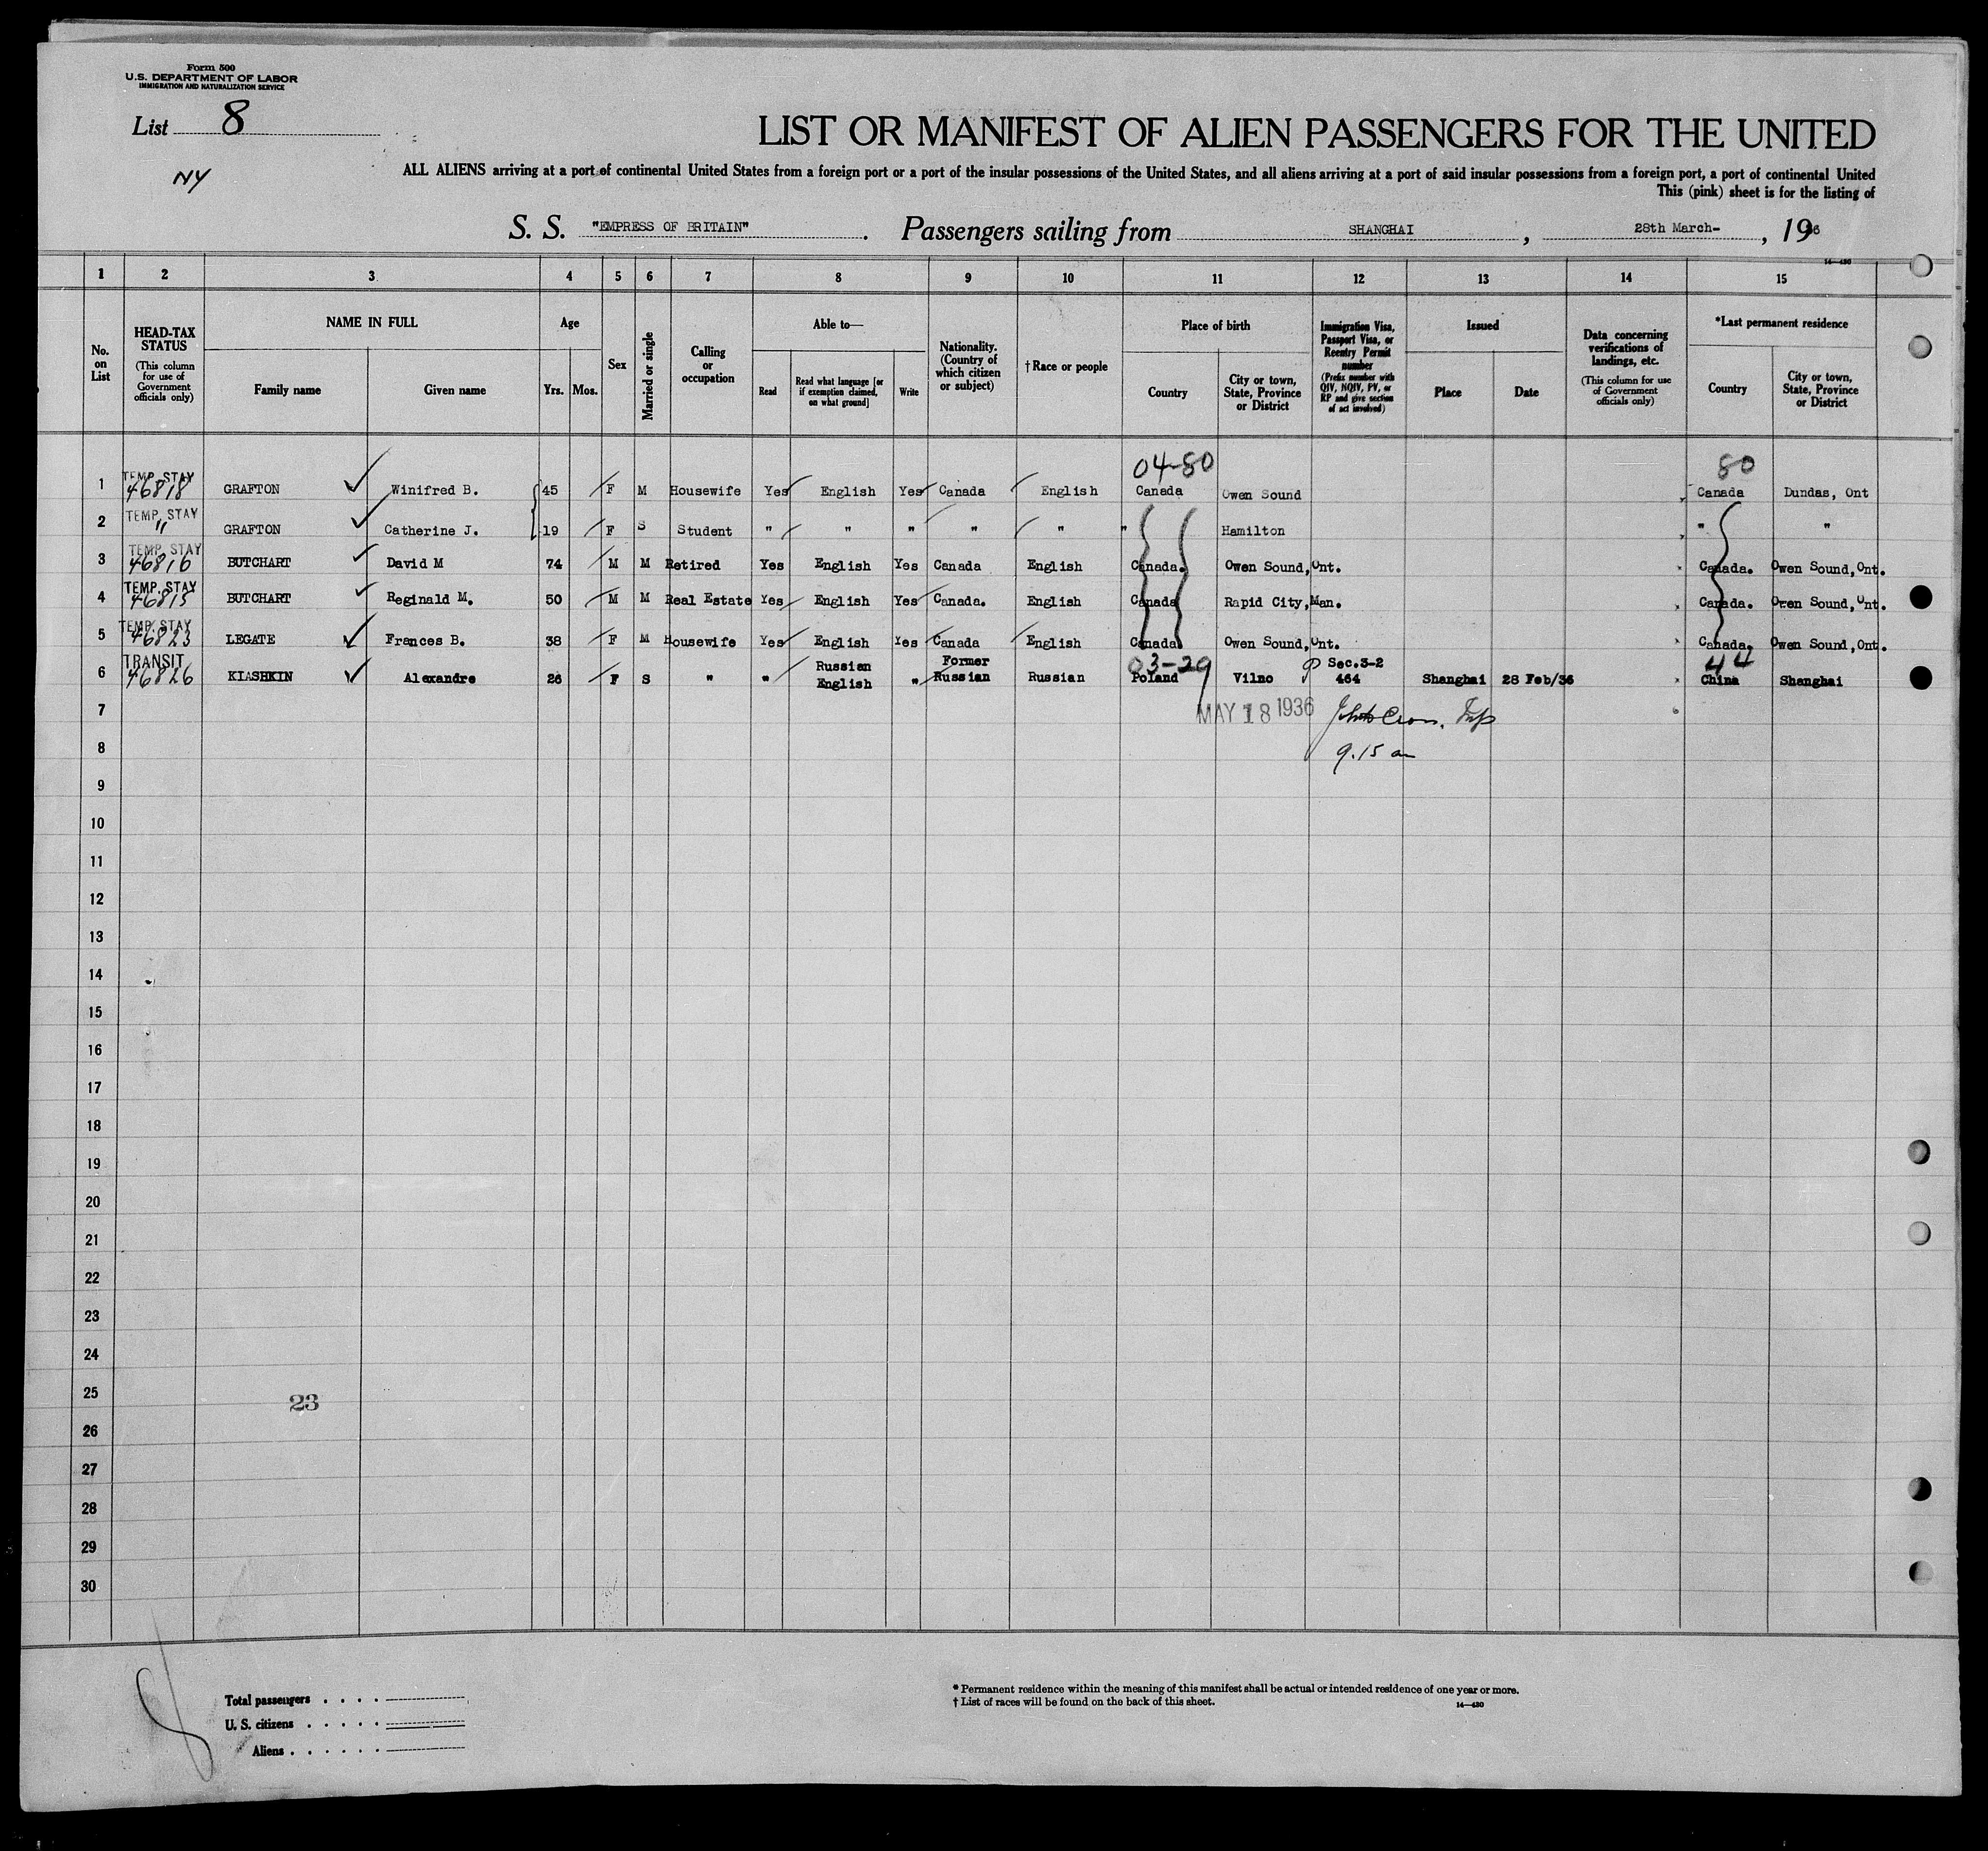 Form 500
U.S. DEPARTMENT OF LABOR
IMMIGRATION AND NATURALIZATION SERVICE
List 8
NY
LIST OR MANIFEST OF ALIEN PASSENGERS FOR THE UNITED
ALL ALIENS arriving at a port of continental United States from a foreign port or a port of the insular possessions of the United States, and all aliens arriving at a port of said insular possessions from a foreign port, a port of continental United
This (pink) sheet is for the listing of
S. S. "EMPRESS OF BRITAIN". Passengers sailing from SHANGHAI, 28th March-, 1936
14—430
1 2 3 4 5 6 7 8 9 10 11 12 13 14 15
No. on List
HEAD-TAX STATUS
(This column for use of Government officials only)
NAME IN FULL
Family name
Given name
Age
Yrs. Mos.
Sex
Married or single
Calling or occupation
Able to—
Read
Read what language [or if exemption claimed, on what ground]
Write
Nationality. (Country of which citizen or subject)
†Race or people
Place of birth
Country
City or town, State, Province or District
Immigration Visa, Passport Visa, or Reentry Permit number
(Prefix number with QIV, NQIV, PV, or RP and give section of act involved)
Issued
Place
Date
Data concerning verifications of landings, etc.
(This column for use of Government officials only)
*Last permanent residence
Country
City or town, State, Province or District
04-80 80
1 TEMP. STAY 46818 GRAFTON Winifred B. 45 F M Housewife Yes English Yes Canada English Canada Owen Sound Canada Dundas, Ont
2 TEMP. STAY " GRAFTON Catherine J. 19 F S Student " " " " " " Hamilton " "
3 TEMP. STAY 46816 BUTCHART David M 74 M M Retired Yes English Yes Canada English Canada. Owen Sound, Ont. Canada. Owen Sound, Ont.
4 TEMP. STAY 46815 BUTCHART Reginald M. 50 M M Real Estate Yes English Yes Canada. English Canada Rapid City, Man. Canada. Owen Sound, Ont.
5 TEMP. STAY 46823 LEGATE Frances B. 38 F M Housewife Yes English Yes Canada English Canada Owen Sound, Ont. Canada. Owen Sound, Ont.
03-29 44
6 TRANSIT 46826 KIASHKIN Alexandre 26 F S " " Russian English " Former Russian Russian Poland Vilno Sec.3-2 464 Shanghai 28 Feb/36 China Shanghai
7 MAY 18 1936
8 9.15 am
9
10
11
12
13
14
15
16
17
18
19
20
21
22
23
24
25
23
26
27
28
29
30
Total passengers
U. S. citizens
Aliens
* Permanent residence within the meaning of this manifest shall be actual or intended residence of one year or more.
† List of races will be found on the back of this sheet.
14—430